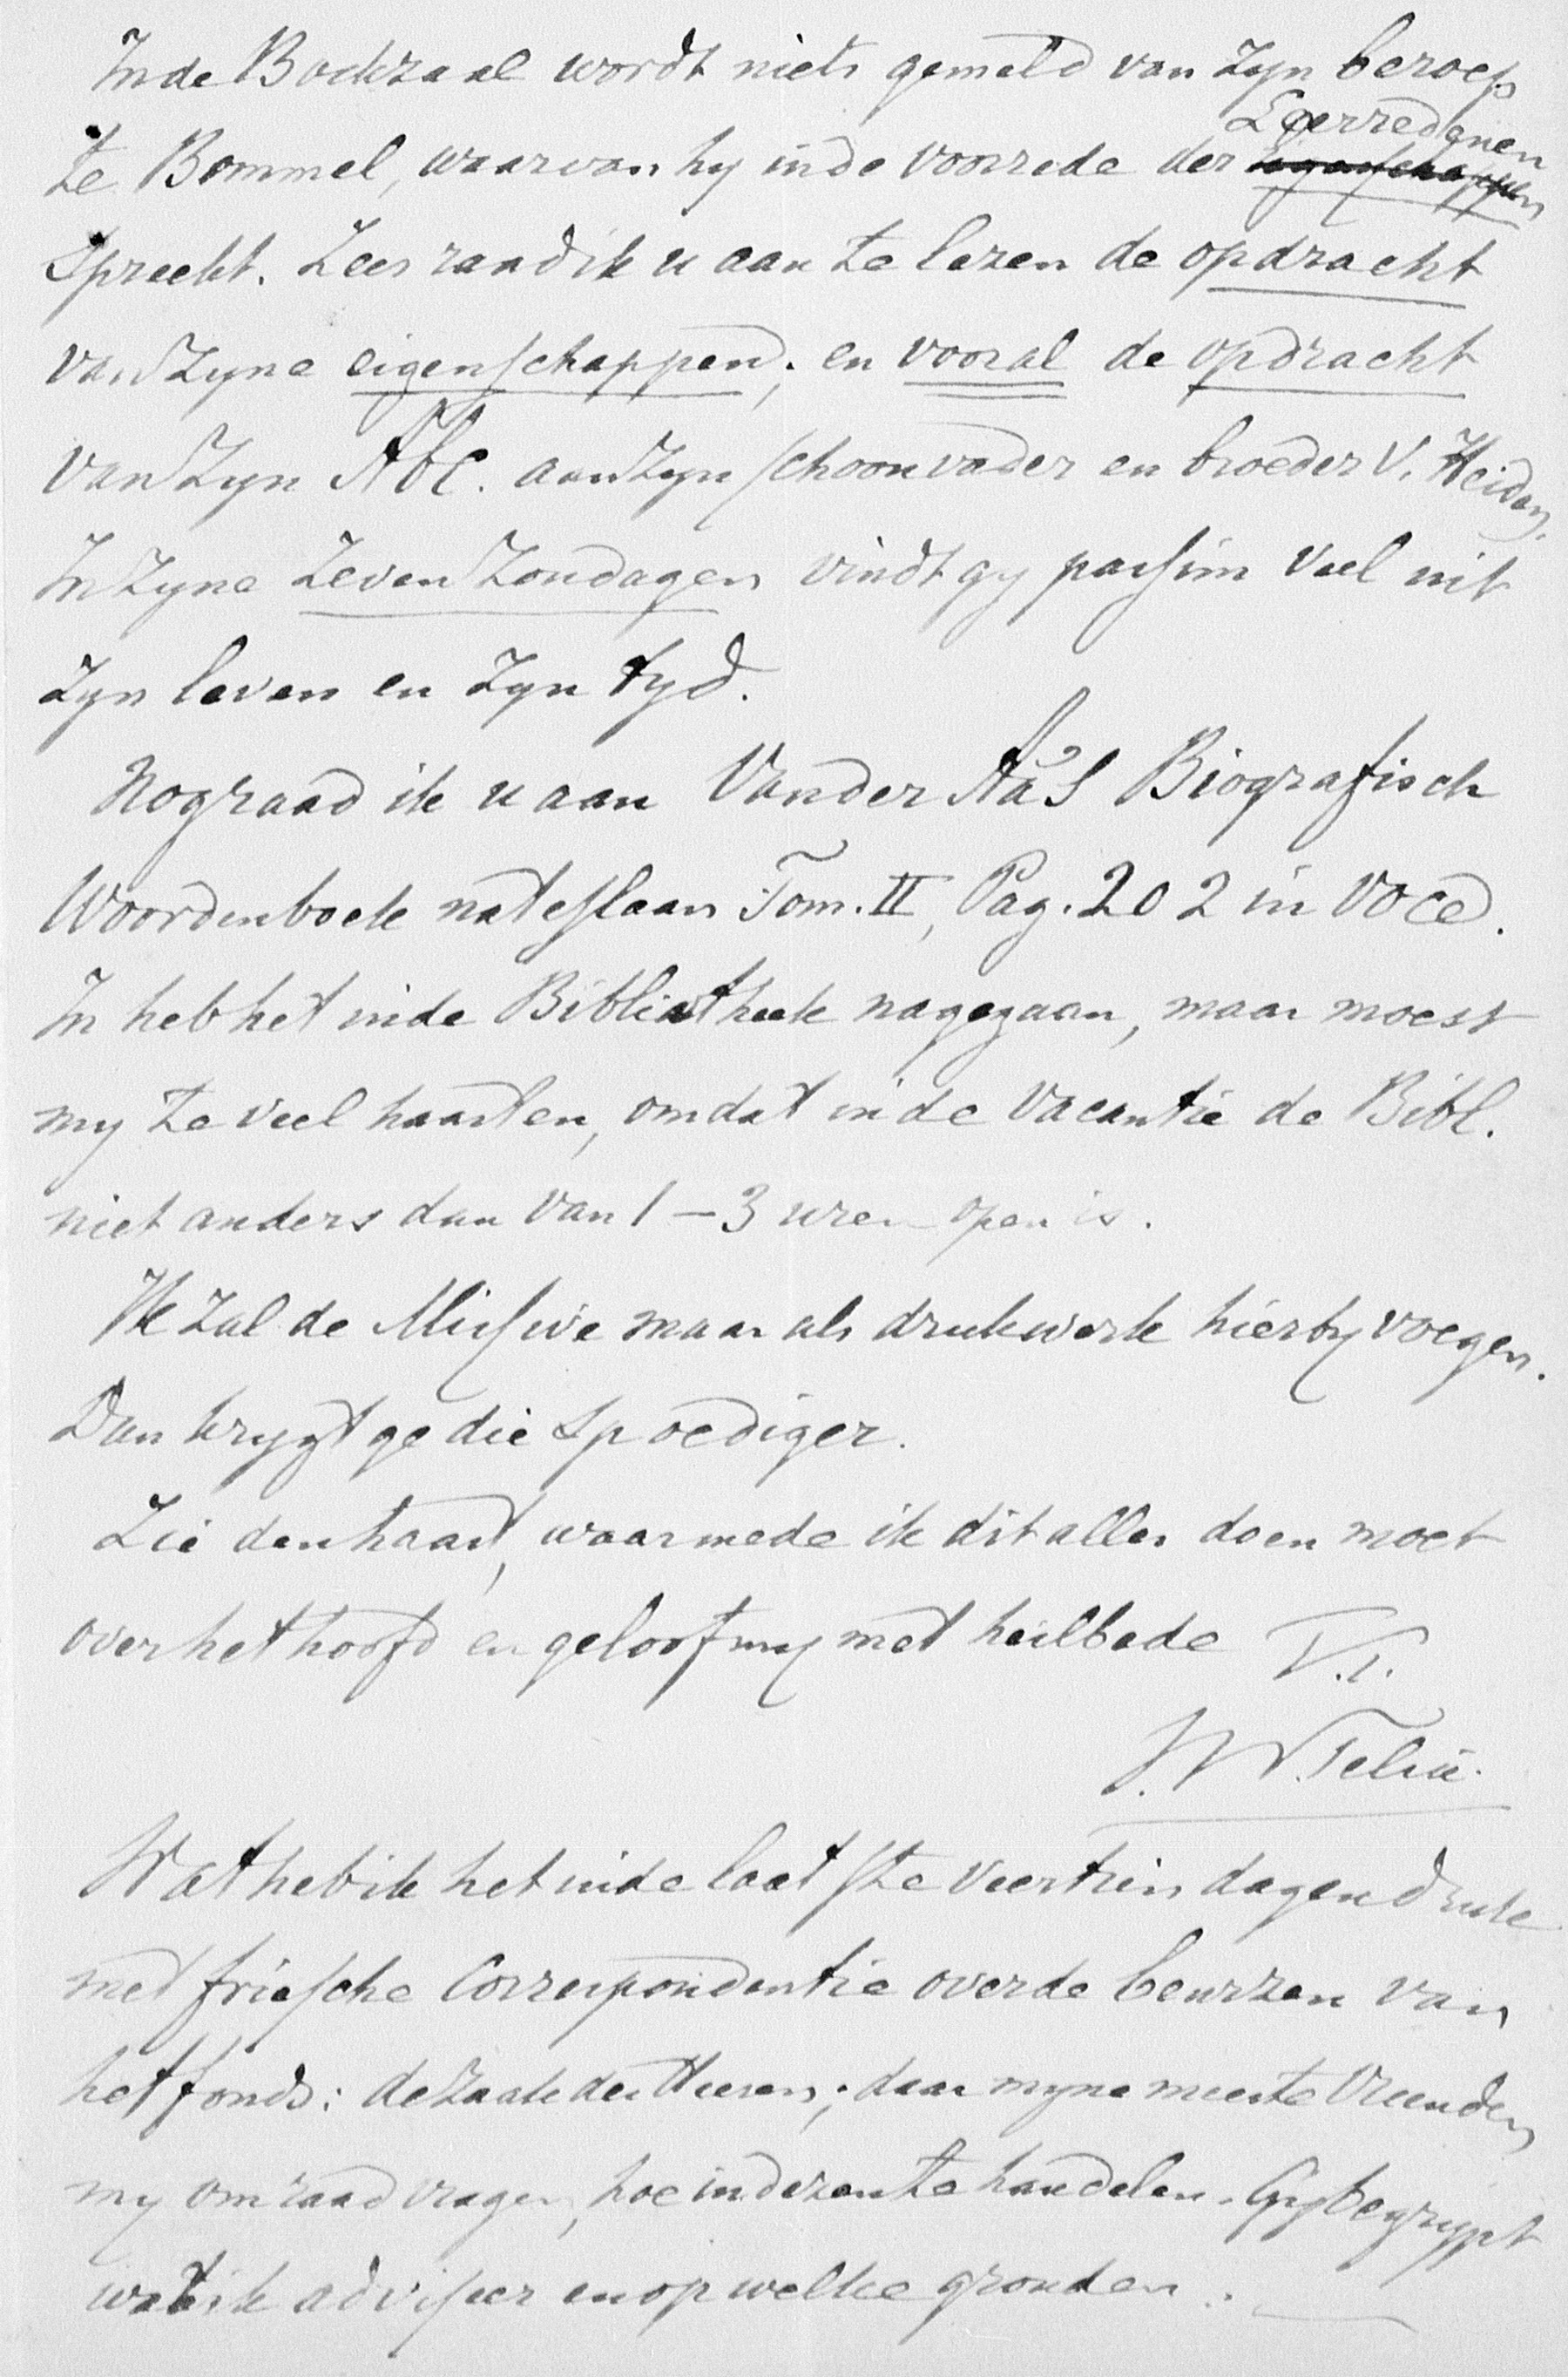 In de Boekzaal wordt niets gemeld van zyn beroep
Leerredenen
te Bommel, waarvan hy in de voorrede der eigenschappen
spreekt. Zeer raad ik u aan te lezen de opdracht
van zyne eigenschappen; en vooral de opdracht
van zyn Abc. aan zyn schoonvader en broeder V. Heiden.
In zyne Zeven Zondagen vindt gy passim veel uit
zyn leven en zyn tyd.
Nog raad ik u aan Vander Aa's Biografisch
Woordenboek na te slaan Tom. II, Pag. 202 in voce.
Ik heb het in de Bibliotheek nagegaan, maar moest
my te veel haasten, omdat in de vacantie de Bibl.
niet anders dan van 1 – 3 uren open is.
Ik zal de Missive maar als drukwerk hierby voegen.
Dan krygt ge die spoediger.
Zie den haast, waarmede ik dit alles doen moet
over het hoofd en geloof my met heilbede T.T.
J. W. Felix.
Wat heb ik het in de laatste veertien dagen druk
met friesche Correspondentie over de beurzen van
het fonds: de zaak des Heeren; daar myne meeste vrienden
my om raad vragen, hoe in dezen te handelen. Gy begrypt
wat ik adviseer en op welke gronden.